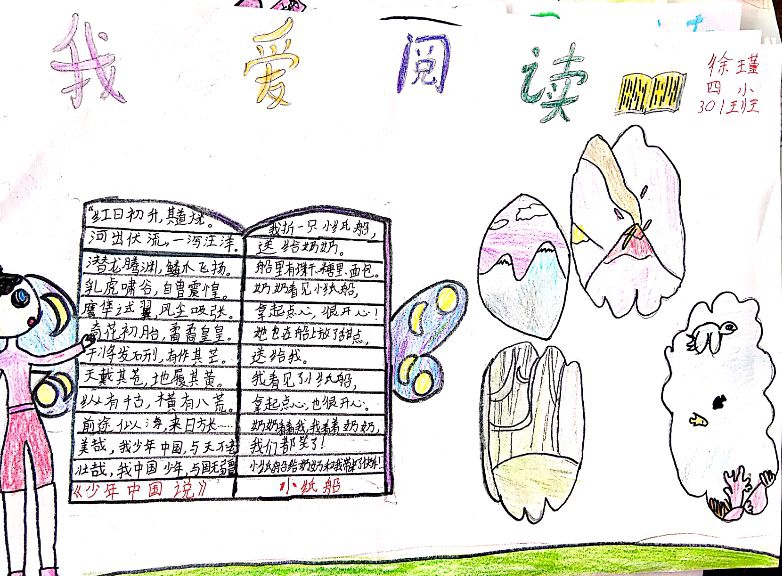 我爱阅读
徐瑾
四小
301班
“红日初升,其道大光。
河出伏流,一泻汪洋。
潜龙腾渊,鳞爪飞扬。
乳虎啸谷,百兽震惶。
鹰隼试翼,风尘吸张。
奇花初胎,矞矞皇皇。
干将发硎,有作其芒。
天戴其苍,地履其黄。
纵有千古,横有八荒。
前途似海,来日方长……
美哉,我少年中国,与天不老
壮哉,我中国少年,与国无疆
《少年中国说》
我折一只小纸船,
送给奶奶。
船里有饼干、糖果、面包。
奶奶看见小纸船,
拿起点心,很开心!
她也在船上放了甜点,
送给我。
我看见了小纸船,
拿起点心,也很开心。
奶奶看看我,我看看奶奶,
我们都笑了!
小纸船给奶奶和我带来了快乐!
小纸船